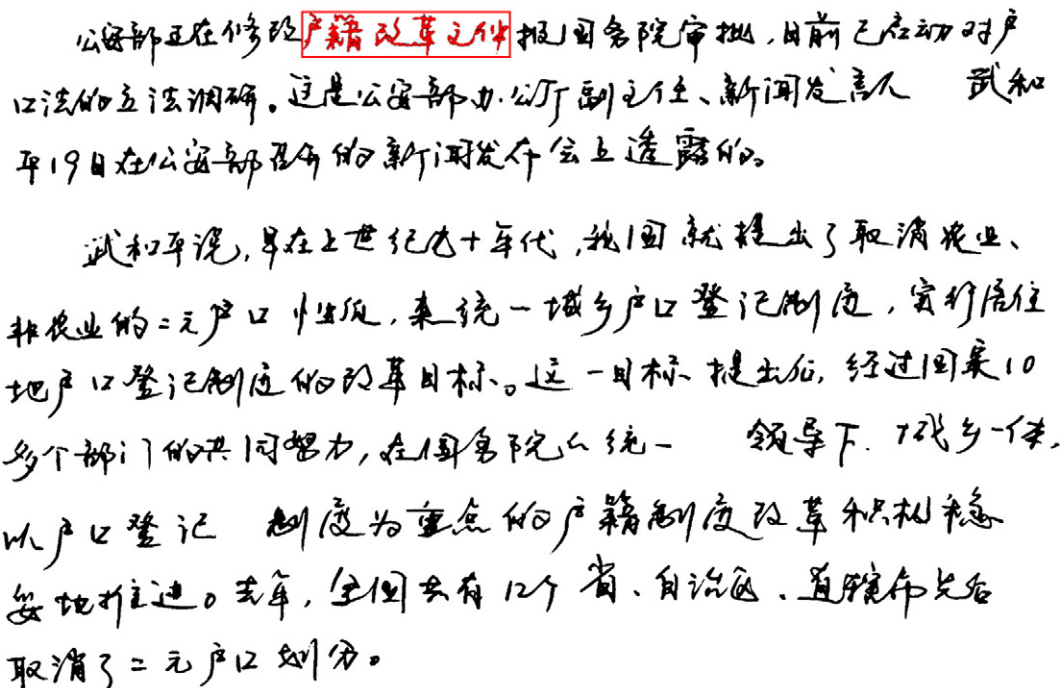 公安部正在修改户籍改革文件报国务院审批,目前已启动对户
口法的立法调研。这是公安部办公厅副主任、新闻发言人 武和
平19日在公安部召开的新闻发布会上透露的。
武和平说,早在上世纪九十年代,我国就提出了取消农业、
非农业的二元户口性质,来统一城乡户口登记制度,实行居住
地户口登记制度的改革目标。这一目标提出后,经过国家10
多个部门的共同努力,在国务院的统一 领导下,城乡一体,
以户口登记 制度为重点的户籍制度改革积极稳
妥地推进。去年,全国共有12个省、自治区、直辖市先后
取消了二元户口划分。